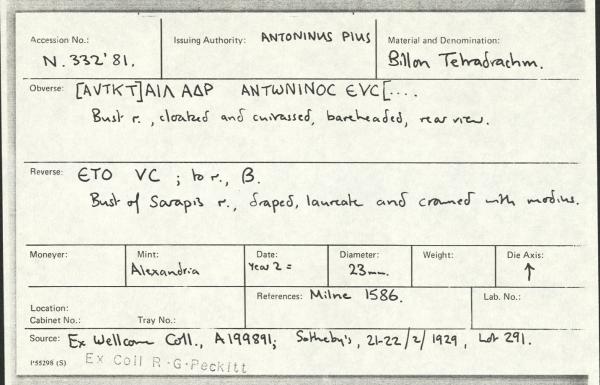 Accession No.: N.332'81.
Issuing Authority: ANTONINUS PIUS
Material and Denomination: Billon Tetradrachm.
Obverse: [ΑVΤΚΤ]ΑΙΛ ΑΔΡ ΑΝΤωΝΙΝΟC ЄVC[....
Bust r., cloaked and cuirassed, bareheaded, rear view.
Reverse: ЄΤΟ VC ; to r., Β.
Bust of Sarapis r., draped, laureate and crowned with modius.
Moneyer:
Mint: Alexandria
Date: Year 2 =
Diameter: 23mm.
Weight:
Die Axis: ↑
Location:
Cabinet No.: Tray No.:
References: Milne 1586.
Lab. No.:
Source: Ex Wellcome Coll., A199891; Sotheby's, 21-22/2/1929, Lot 291.
1'55298 (S) Ex Coll R·G·Peckitt